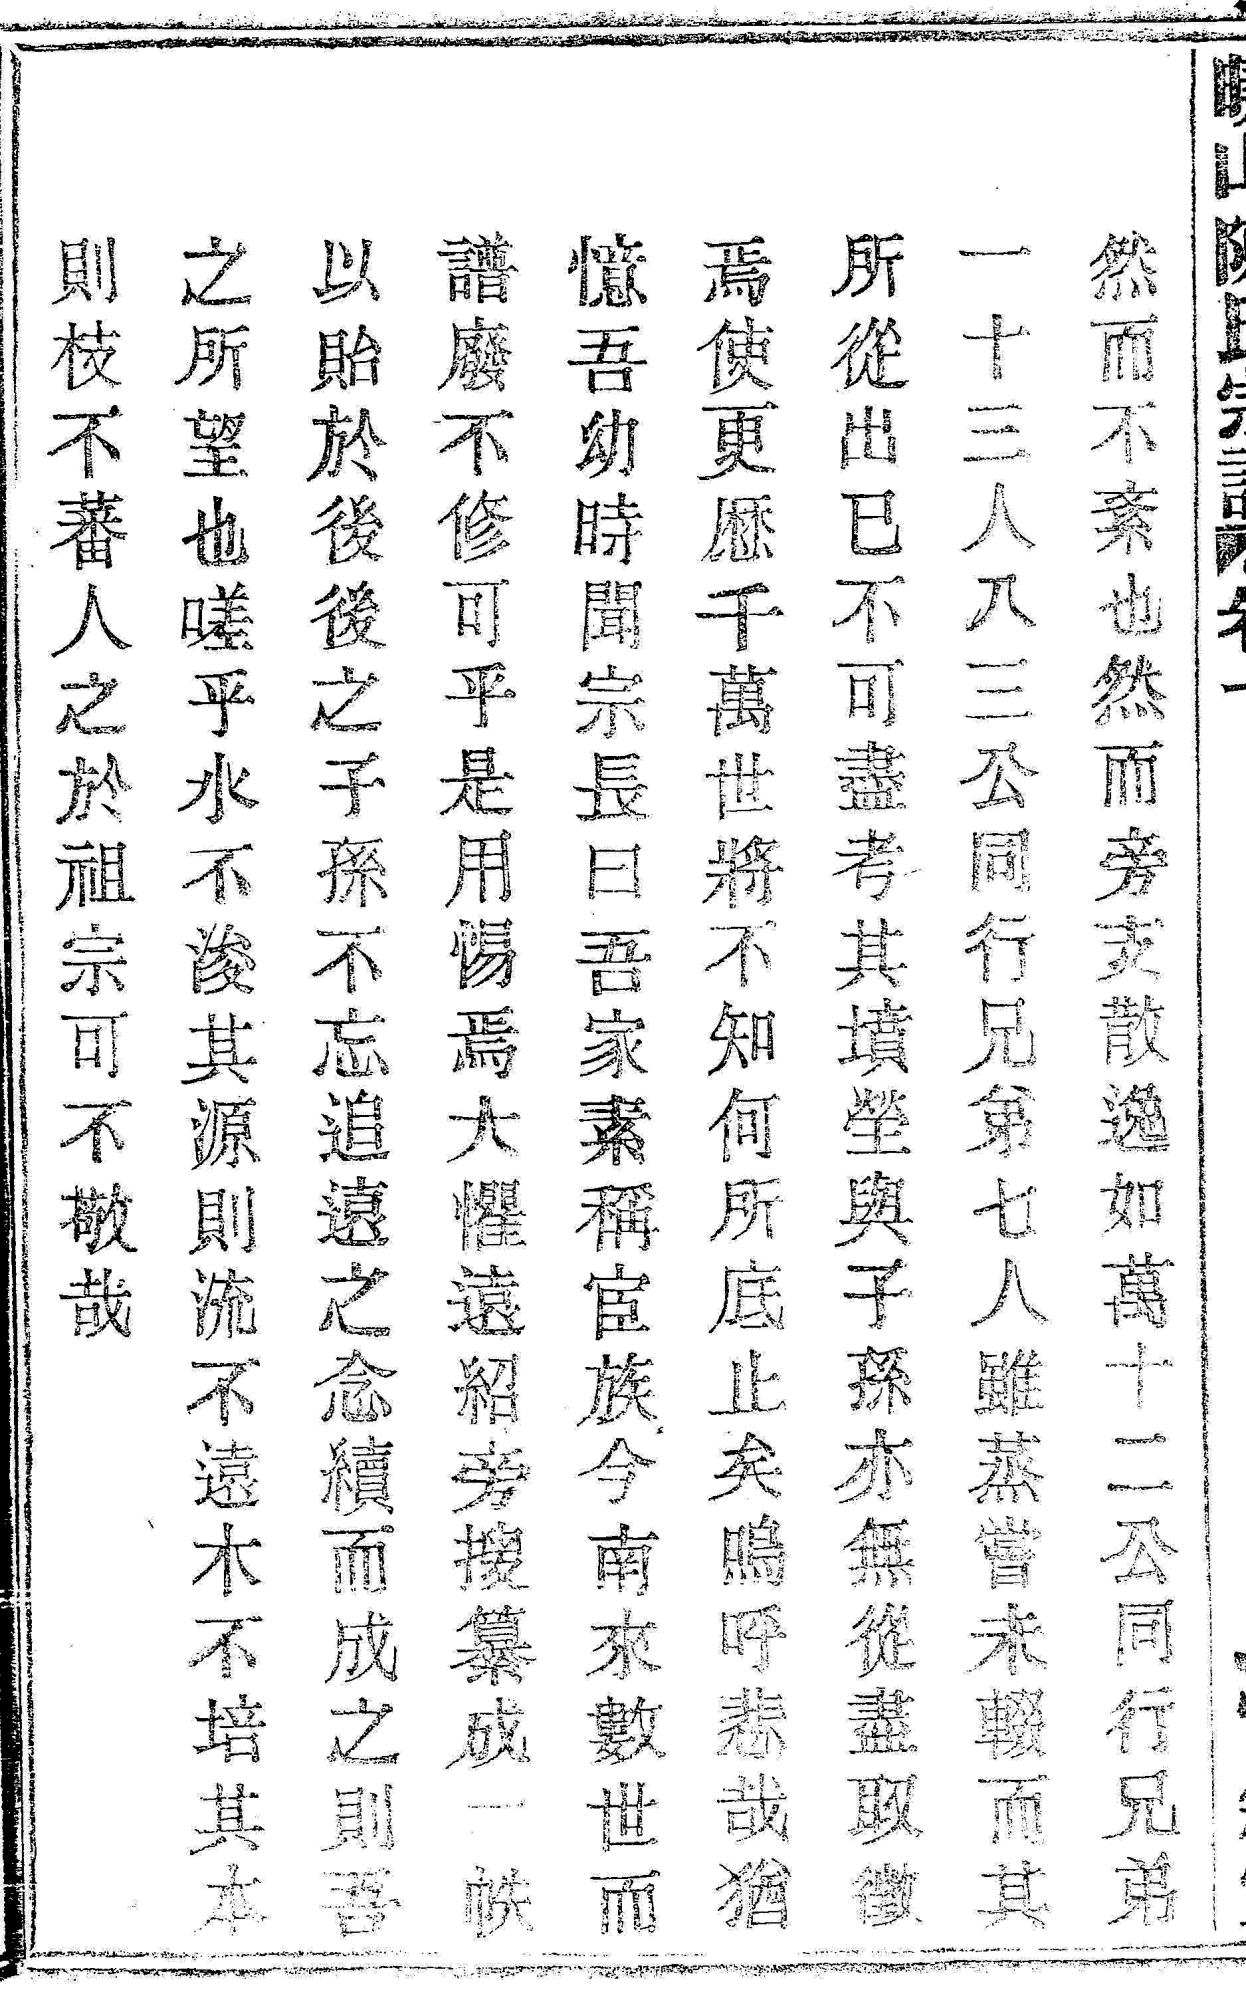 山陳氏宗譜卷一
然而不紊也然而旁支散逸如萬十二公同行兄弟
一十三人八三公同行兄弟七人雖蒸嘗未輟而其
所從出已不可盡考其墳塋與子孫亦無從盡取徵
焉使更歷千萬世將不知何所底止矣嗚呼悲哉猶
憶吾幼時聞宗長曰吾家素稱宦族今南來數世而
譜廢不修可乎是用惕焉大懼遠紹旁搜纂成一帙
以貽於後後之子孫不忘追遠之念續而成之則吾
之所望也嗟乎水不浚其源則流不遠木不培其本
則枝不蕃人之於祖宗可不敬哉